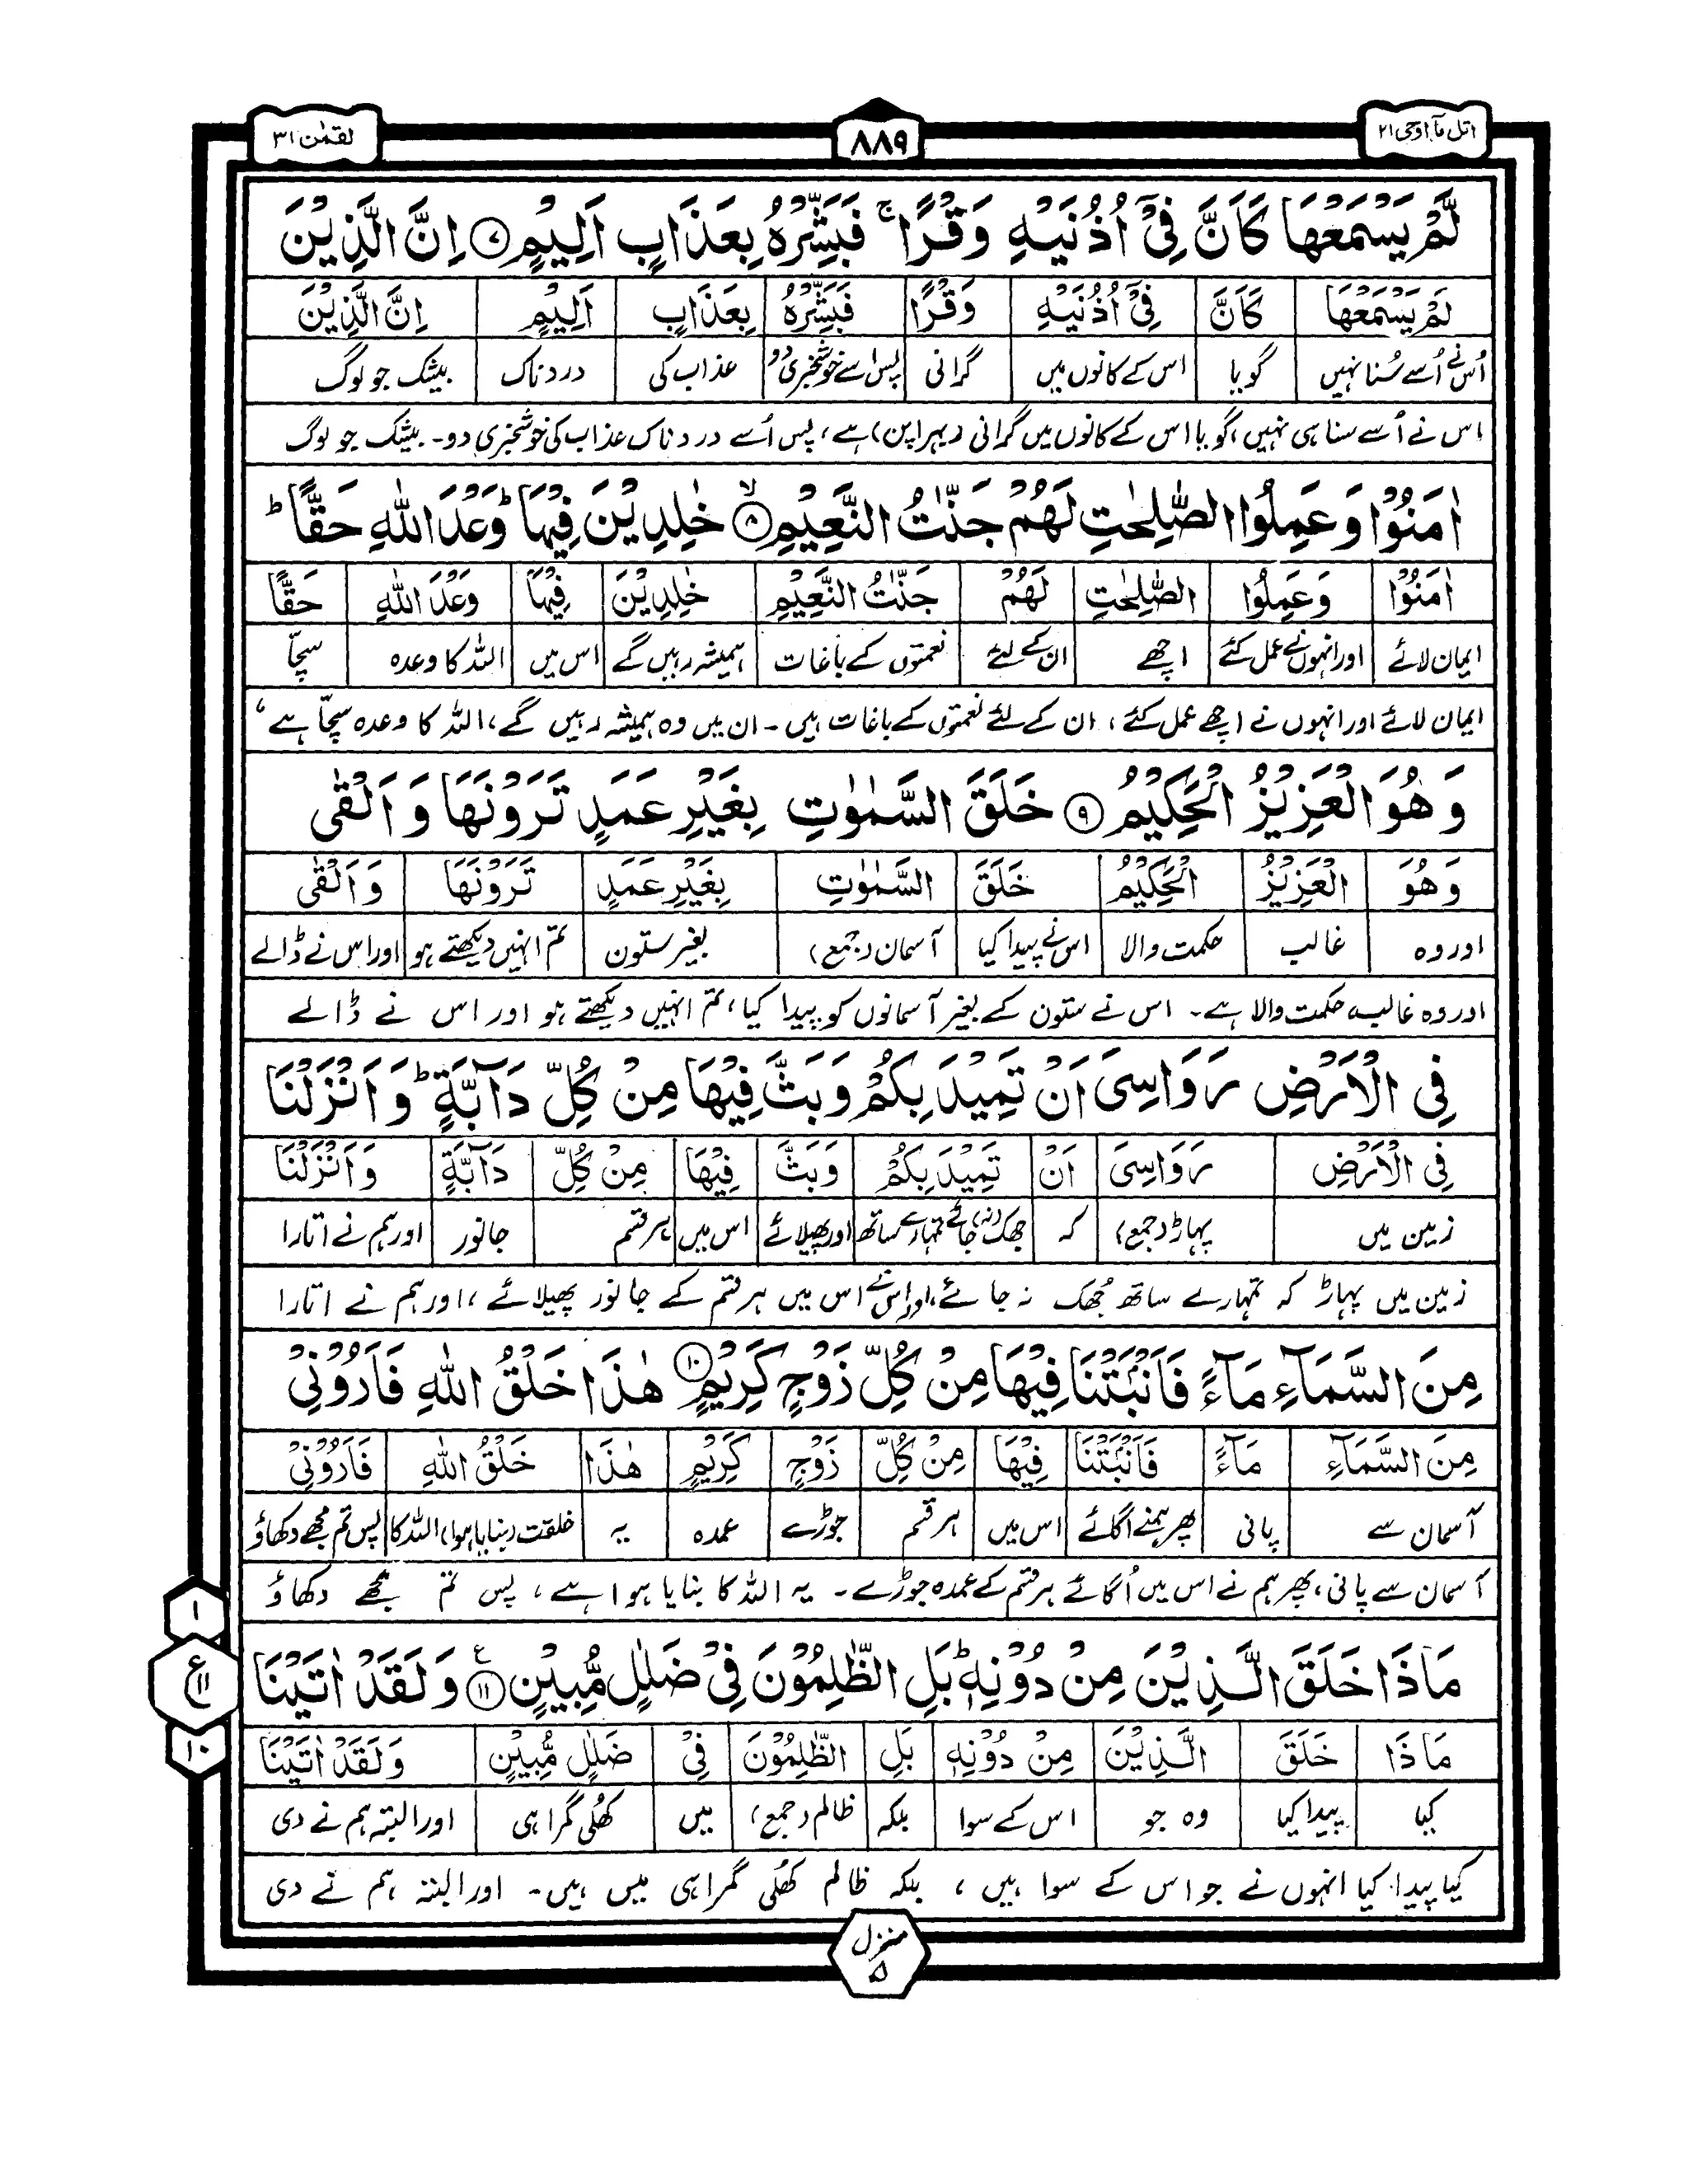 اتل مآ اوحی ۲۱
۸۸۹
لقمٰن ۳۱
لَّمْ یَسْمَعْهَا كَاَنَّ فِیْۤ اُذُنَیْهِ وَقْرًا ۚ فَبَشِّرْهُ بِعَذَابٍ اَلِیْمٍ ۷ اِنَّ الَّذِیْنَ
لَّمْ یَسْمَعْهَا كَاَنَّ فِیْۤ اُذُنَیْهِ وَقْرًا فَبَشِّرْهُ بِعَذَابٍ اَلِیْمٍ اِنَّ الَّذِیْنَ
اُس نے اُسے سُنا نہیں گویا اس کے کانوں میں گرانی پس اسے خوشخبری دو عذاب کی دردناک بیشک جو لوگ
اس نے اُسے سنا ہی نہیں، گویا اس کے کانوں میں گرانی (بہراپن) ہے، پس اُسے دردناک عذاب کی خوشخبری دو۔ بیشک جو لوگ
اٰمَنُوْا وَ عَمِلُوا الصّٰلِحٰتِ لَهُمْ جَنّٰتُ النَّعِیْمِ ۙ۸ خٰلِدِیْنَ فِیْهَا ؕ وَعْدَ اللّٰهِ حَقًّا ؕ
اٰمَنُوْا وَ عَمِلُوا الصّٰلِحٰتِ لَهُمْ جَنّٰتُ النَّعِیْمِ خٰلِدِیْنَ فِیْهَا وَعْدَ اللّٰهِ حَقًّا
ایمان لائے اور انہوں نے عمل کئے اچھے ان کے لئے نعمتوں کے باغات ہمیشہ رہیں گے اس میں اللہ کا وعدہ سچّا
ایمان لائے اور انہوں نے اچھے عمل کئے، ان کے لئے نعمتوں کے باغات ہیں۔ ان میں وہ ہمیشہ رہیں گے، اللہ کا وعدہ سچّا ہے،
وَ هُوَ الْعَزِیْزُ الْحَكِیْمُ ۹ خَلَقَ السَّمٰوٰتِ بِغَیْرِ عَمَدٍ تَرَوْنَهَا وَ اَلْقٰی
وَ هُوَ الْعَزِیْزُ الْحَكِیْمُ خَلَقَ السَّمٰوٰتِ بِغَیْرِ عَمَدٍ تَرَوْنَهَا وَ اَلْقٰی
اور وہ غالب حکمت والا اس نے پیدا کیا آسمان (جمع) بغیر ستون تم انہیں دیکھتے ہو اور اس نے ڈالے
اور وہ غالب حکمت والا ہے۔ اس نے ستون کے بغیر آسمانوں کو پیدا کیا، تم انہیں دیکھتے ہو اور اس نے ڈالے
فِی الْاَرْضِ رَوَاسِیَ اَنْ تَمِیْدَ بِكُمْ وَ بَثَّ فِیْهَا مِنْ كُلِّ دَآبَّةٍ ؕ وَ اَنْزَلْنَا
فِی الْاَرْضِ رَوَاسِیَ اَنْ تَمِیْدَ بِكُمْ وَ بَثَّ فِیْهَا مِنْ كُلِّ دَآبَّةٍ وَ اَنْزَلْنَا
زمین میں پہاڑ (جمع) کہ جھک (نہ) جائے تمہارے ساتھ اور پھیلائے اس میں ہر قسم جانور اور ہم نے اتارا
زمین میں پہاڑ کہ تمہارے ساتھ جُھک نہ جائے، اور اس نے اس میں ہر قسم کے جانور پھیلائے، اور ہم نے اتارا
مِنَ السَّمَآءِ مَآءً فَاَنْۢبَتْنَا فِیْهَا مِنْ كُلِّ زَوْجٍ كَرِیْمٍ ۱۰ هٰذَا خَلْقُ اللّٰهِ فَاَرُوْنِیْ
مِنَ السَّمَآءِ مَآءً فَاَنْۢبَتْنَا فِیْهَا مِنْ كُلِّ زَوْجٍ كَرِیْمٍ هٰذَا خَلْقُ اللّٰهِ فَاَرُوْنِیْ
آسمان سے پانی پھر ہم نے اگائے اس میں ہر قسم جوڑے عمدہ یہ خلقت (بنایا ہوا) اللہ کا پس تم مجھے دکھاؤ
آسمان سے پانی، پھر ہم نے اس میں اُگائے ہر قسم کے عمدہ جوڑے۔ یہ اللہ کا بنایا ہوا ہے، پس تم مجھے دکھاؤ
مَاذَا خَلَقَ الَّذِیْنَ مِنْ دُوْنِهٖ ؕ بَلِ الظّٰلِمُوْنَ فِیْ ضَلٰلٍ مُّبِیْنٍ ۧ۱۱ وَ لَقَدْ اٰتَیْنَا
۱
ع ۱۱
۱۰
مَاذَا خَلَقَ الَّذِیْنَ مِنْ دُوْنِهٖ بَلِ الظّٰلِمُوْنَ فِیْ ضَلٰلٍ مُّبِیْنٍ وَ لَقَدْ اٰتَیْنَا
کیا پیدا کیا وہ جو اس کے سوا بلکہ ظالم (جمع) میں کھُلی گمراہی اور البتہ ہم نے دی
کیا پیدا کیا انہوں نے جو اس کے سوا ہیں، بلکہ ظالم کھُلی گمراہی میں ہیں۔ اور البتہ ہم نے دی
منزل ۵